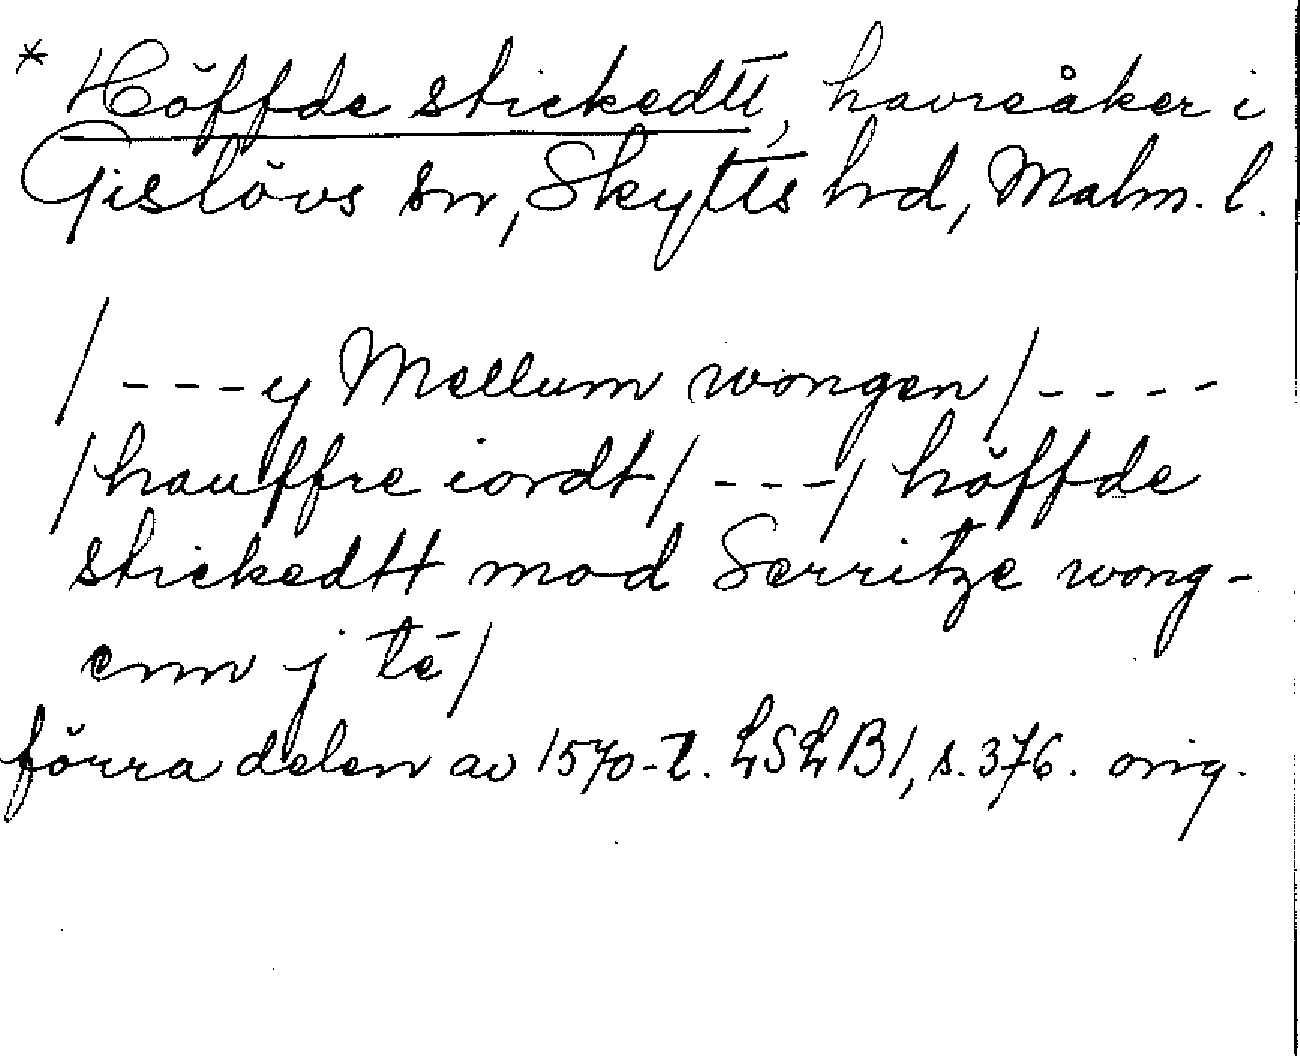 * Höffde stickedtt, havreåker i
Gislövs sn, Skytts hd, Malm. l.
/---y Mellum wongen/----
/hauffre iordt/---/ höffde
stickedtt mod Serritze wong-
enn j tē/
förra delen av 1570-t. LSLB1, s. 376. orig.